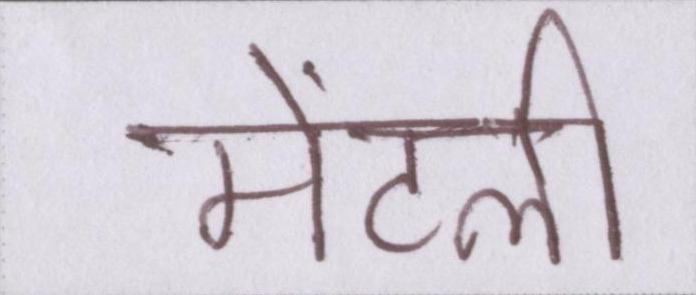 मेंटली